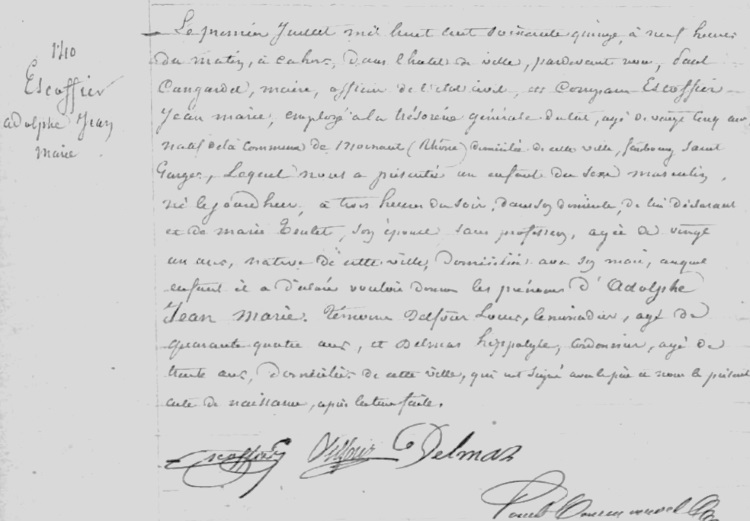 140
Escoffier
adolphe Jean
marie
Le premier Juillet mil huit cent soixante quinze, à neuf heures
du matin, à cahors, dans l'hotel de ville, pardevant nous, Paul
Cangardel, maire, officier de l'état civil, est Comparu Escoffier
Jean marie, employé à la trésorerie générale du Lot, agé de vingt cinq ans
natif de la commune de Mornant (Rhône) domicilié de cette ville, faubourg saint
Georges, Lequel nous a présenté un enfant du sexe masculin,
né le jourdhier, à trois heures du soir, dans son domicile, de lui déclarant
et de marie Toulet, son épouse sans profession, agée de vingt
un ans, native de cette ville, domiciliée avec son mari, auquel
enfant il a déclaré vouloir donner les prénoms d'Adolphe
Jean Marie. témoins Delfour Louis, agé de
quarante quatre ans, et Delmas hippolyte, cordonnier, agé de
trente ans, domiciliés de cette ville, qui ont signé avec le père et nous le présent
acte de naissance, après lecture faite.
Escoffier Delfour Delmas